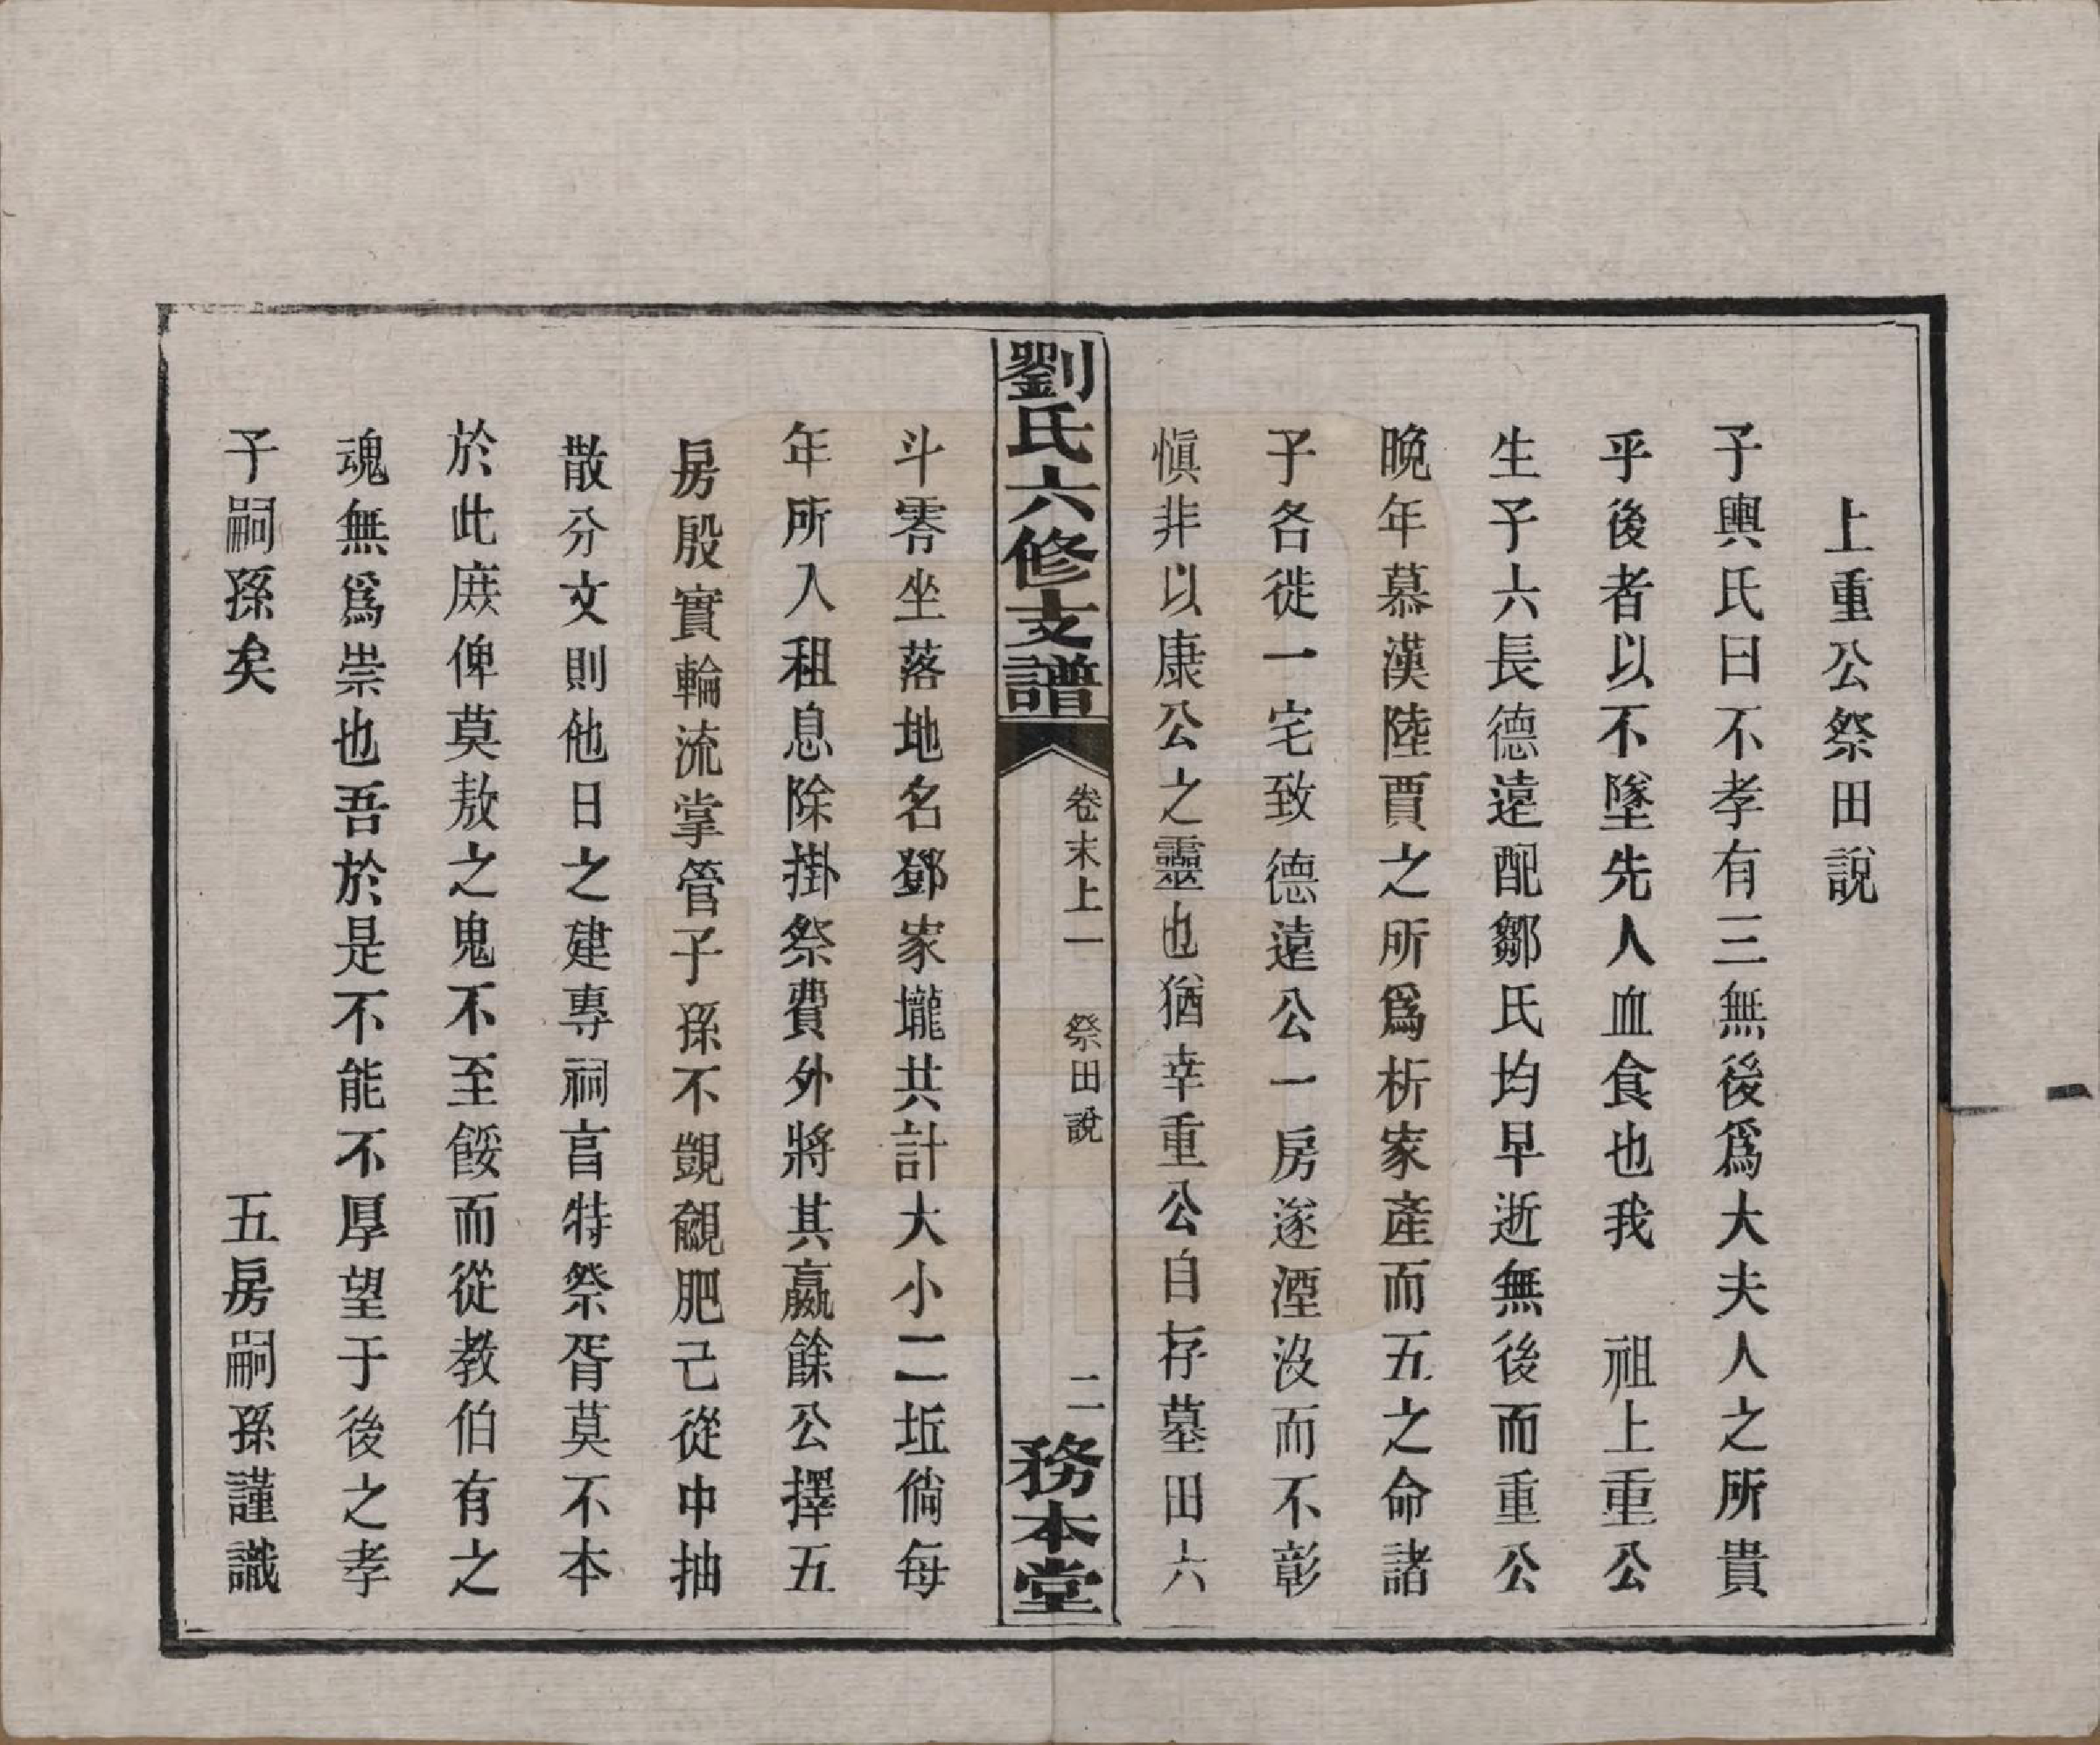 上重公祭田說
子輿氏曰不孝有三無後爲大夫人之所貴
乎後者以不墜先人血食也我　祖上重公
生子六長德遠配鄒氏均早逝無後而重公
晚年慕漢陸賈之所爲析家產而五之命諸
子各徙一宅致德遠公一房遂湮沒而不彰
愼非以康公之靈也猶幸重公自存墓田六
劉氏六修支譜
卷末上一　祭田說
二
務本堂
斗零坐落地名鄧家壠共計大小二坵倘每
年所入租息除掛祭費外將其贏餘公擇五
房殷實輪流掌管子孫不覬覦肥己從中抽
散分文則他日之建專祠享特祭胥莫不本
於此庶俾莫敖之鬼不至餒而從教伯有之
魂無爲祟也吾於是不能不厚望于後之孝
子嗣孫矣
五房嗣孫謹識